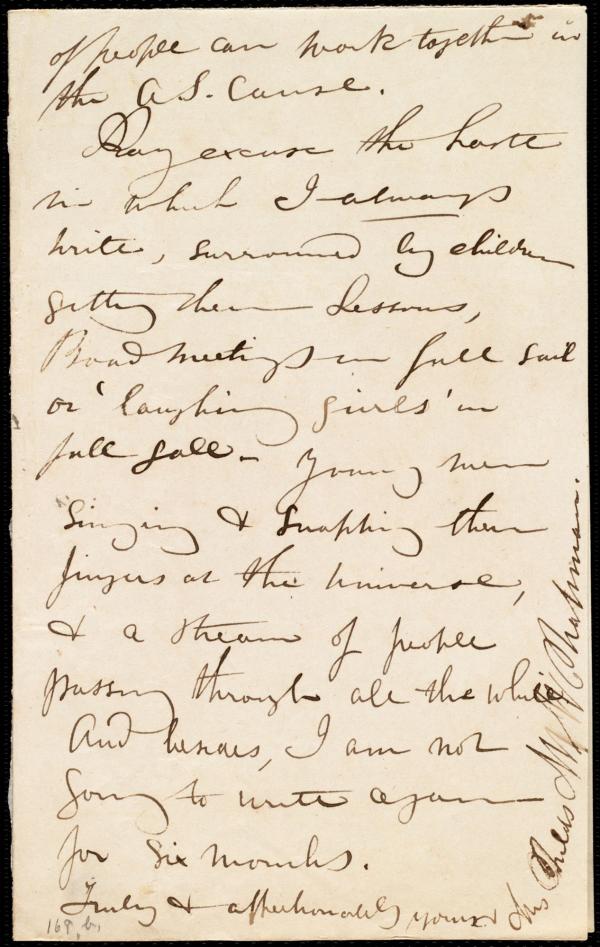 of people can work together in
the A.S. Cause.
Pray excuse the haste
in which I always
write, surrounded by children
getting their Lessons,
Board meetings in full sail
or 'laughing girls' in
full gall - young men
singing & snapping their
fingers at the Universe,
& a stream of people
passing through all the while
And besides, I am not
going to write again
for six months.
Truly & affectionately yours
M W Chapman.
168, b,